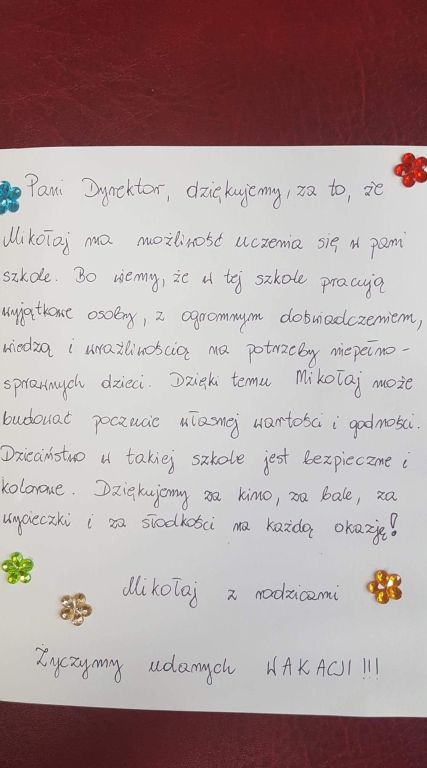 Pani Dyrektor, dziękujemy, za to, że
Mikołaj ma możliwość uczenia się w pani
szkole. Bo wiemy, że w tej szkole pracują
wyjątkowe osoby, z ogromnym doświadczeniem,
wiedzą i wrażliwością na potrzeby niepełno-
sprawnych dzieci. Dzięki temu Mikołaj może
budować poczucie własnej wartości i godności.
Dzieciństwo w takiej szkole jest bezpieczne i
kolorowe. Dziękujemy za kino, za bale, za
wycieczki i za słodkości na każdą okazję!
Mikołaj z rodzicami
Życzymy udanych WAKACJI!!!